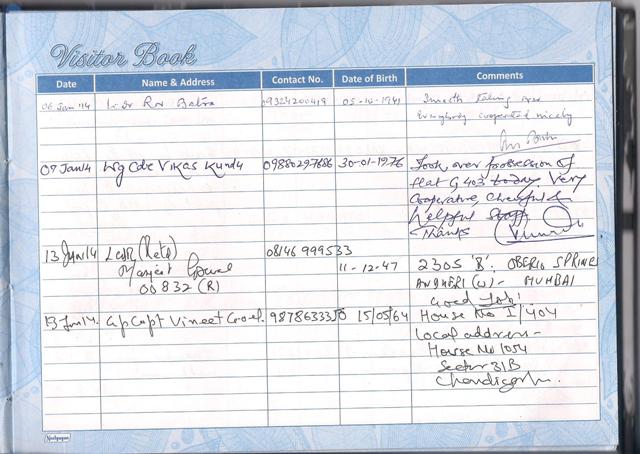 Visitor Book
Date Name & Address Contact No. Date of Birth Comments
06 Jan '14 Lt Cdr Ravi Batra 09324200419 05-10-1941 Smooth Taking Over
Everybody cooperated nicely
07 Jan 14 Wg Cdr Vikas Kundu 09880297686 30-01-1976 Took over possession of
flat G 403 today. Very
Cooperative, Cheerful &
helpful Staff.
Thanks
13 Jan 14 Lcdr (Retd) 08146 999533
Manjeet 11-12-47 2305 'B': OBEROI SPRINGS
00832 (R) ANDHERI (W) - MUMBAI
Good Job!
13 Jan 14. Gp Capt Vineet Goel. 9878633350 15/05/64 House No I/404
Local address -
House No 1054
Sector 31B
Chandigarh.
Neelgagan